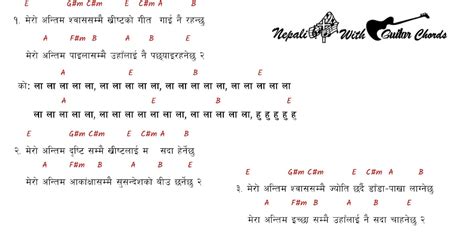 E G#m C#m E C#m A B
१. मेरो अन्तिम श्वाससम्मै ख्रीष्टको गीत गाई नै रहन्छु
A F#m B A E B
मेरो अन्तिम पाइलासम्मै उहाँलाई नै पछ्याइरहनेछु २
A E B E
को: ला ला ला ला ला, ला ला ला ला, ला ला ला ला, ला ला ला ला,
A E B E
ला ला ला ला ला, ला ला ला ला, ला ला ला ला, हु हु हु हु हु
E G#m C#m E C#m A B
२. मेरो अन्तिम दृष्टि सम्मै ख्रीष्टलाई म सदा हेर्नेछु
A F#m B A E B
मेरो अन्तिम आकांक्षासम्मै सुसन्देशको बीउ छर्नेछु २
Nepali With Guitar Chords
E G#m C#m E C#m A B
३. मेरो अन्तिम श्वाससम्मै ज्योति छर्दै डाँडा-पाखा लाग्नेछु
A F#m B A E B
मेरो अन्तिम इच्छा सम्मै उहाँलाई नै सदा चाहनेछु २